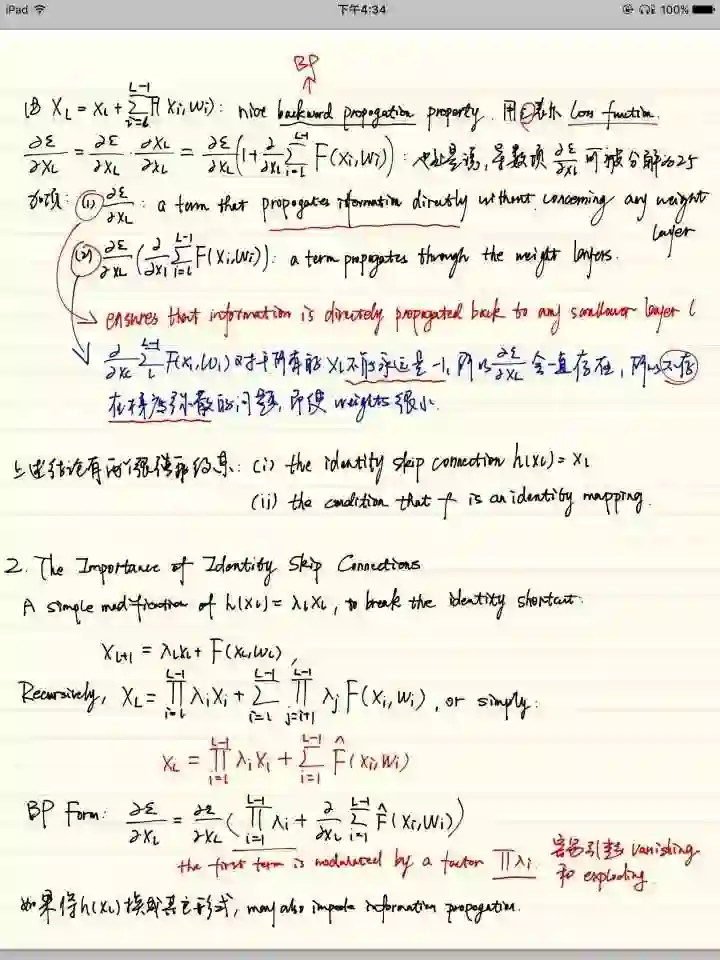 iPad 下午4:34 100%
BP
(B) X_L = X_l + ∑_{i=l}^{L-1} F(Xi, Wi): nice backward propagation property. 用ε表示 Loss function.
∂ε/∂X_l = ∂ε/∂X_L · ∂X_L/∂X_l = ∂ε/∂X_L (1 + ∂/∂X_l ∑_{i=l}^{L-1} F(Xi, Wi)): 也就是说, 导数项 ∂ε/∂X_l 可被分解为2个
加项: (1) ∂ε/∂X_L: a term that propagates information directly without concerning any weight
layer
(2) ∂ε/∂X_L (∂/∂X_l ∑_{i=l}^{L-1} F(Xi, Wi)): a term propagates through the weight layers.
ensures that information is directely propagated back to any smallower layer l
∂/∂X_l ∑_{l}^{L-1} F(Xi, Wi) 对于所有的 X_l 不能永远是 -1, 所以 ∂ε/∂X_l 会一直存在, 所以不存
在梯度弥散的问题, 即使 weights 很小.
上述结论有两个很强的约束: (i) the identity skip connection h(X_l) = X_l
(ii) the condition that f is an identity mapping.
2. The Importance of Identity Skip Connections
A simple modification of h(X_l) = λ_l X_l, to break the identity shortcut:
X_{l+1} = λ_l X_l + F(X_l, W_l),
Recursively, X_L = ∏_{i=l}^{L-1} λi Xi + ∑_{i=l}^{L-1} ∏_{j=i+1}^{L-1} λj F(Xi, Wi), or simply:
X_L = ∏_{i=l}^{L-1} λi Xi + ∑_{i=l}^{L-1} F̂(Xi, Wi)
BP Form: ∂ε/∂X_l = ∂ε/∂X_L (∏_{i=l}^{L-1} λi + ∂/∂X_l ∑_{i=l}^{L-1} F̂(Xi, Wi))
the first term is modulated by a factor ∏λi. 容易引起 vanishing
和 exploding.
如果将 h(X_l) 换成其它形式, may also impede information propagation.